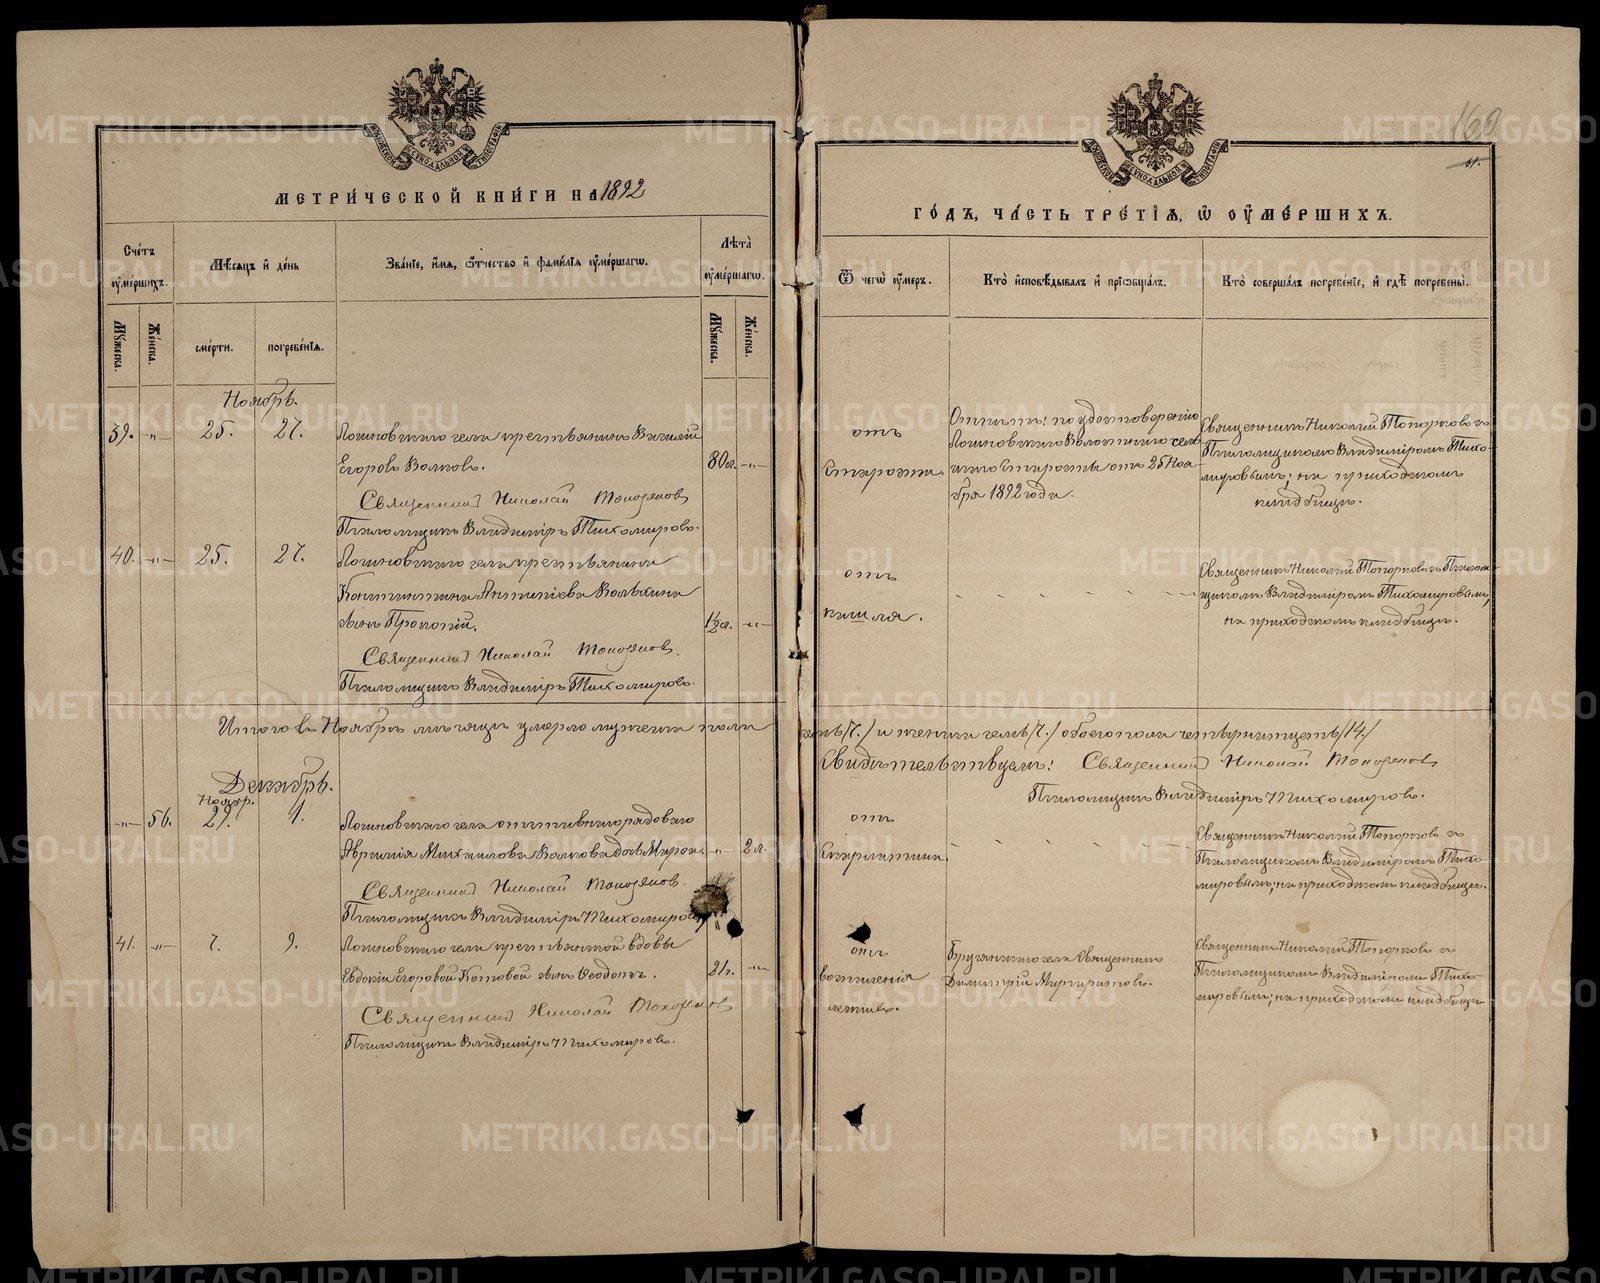 160
41.
МЕТРИ́ЧЕСКОЙ КНИ́ГИ НА 1892
ГО́ДЪ, ЧА́СТЬ ТРЕ́ТІѦ, Ѿ ОУМЕ́РШИХЪ.
Сче́тъ оуме́ршихъ.
Мѣ́сѧцъ и҆ де́нь
Зва́ніе, и҆́мѧ, ѻ҆́тчество и҆ фами́лїѧ оуме́ршагѡ.
Лѣ́та оуме́ршагѡ.
Ѿ чегѡ̀ оу́меръ.
Кто̀ и҆сповѣ́дывалъ и҆ прїѡбща́лъ.
Кто̀ соверша́лъ погребе́нїе, и҆ гдѣ̀ погребены̀.
Мꙋ́жеска.
Же́нска.
сме́рти.
погребе́нїѧ.
Мꙋ́жеска.
Же́нска.
Ноябрь.
39. -"- 25. 27.
Логиновскаго села крестьянинъ Василій
Егоровъ Волковъ. 80 л. -"-
Священникъ Николай Топорковъ
Псаломщикъ Владиміръ Тихомировъ.
отъ
старости.
по удостоверенію
Логиновскаго Волостнаго
старосты отъ 25 Ноя-
бря 1892 года.
Священникъ Николай Топорковъ съ
Псаломщикомъ Владиміромъ Тихо-
мировымъ; на приходскомъ
кладбищѣ.
40. -"- 25. 27.
Логиновскаго села крестьянина
Константина
сынъ Прокопій. 1½ г. -"-
Священникъ Николай Топорковъ.
Псаломщикъ Владиміръ Тихомировъ.
отъ
кашля.
Священникъ Николай Топорковъ съ Псалом-
щикомъ Владиміромъ Тихомировымъ,
на приходскомъ кладбищѣ.
Итого въ Ноябрѣ мѣсяцѣ умерло мужеска пола
семь /7./ и женска семь /7./ обоего пола четырнадцать /14./
Свидѣтельствуемъ: Священникъ Николай Топорковъ
Псаломщикъ Владиміръ Тихомировъ.
Декабрь.
Нояр.
-"- 56. 29. 1.
Логиновскаго села отставнаго рядоваго
Михаилова Волкова дочь -"- 2 л.
Священникъ Николай Топорковъ.
Псаломщикъ Владиміръ Тихомировъ
отъ
скарлатины.
Священникъ Николай Топорковъ съ
Псаломщикомъ Владиміромъ Тихо-
мировымъ; на приходскомъ кладбищѣ.
41. -"- 7. 9.
Логиновскаго села крестьянской вдовы
Евдокіи Егоровой Котовой сынъ Ѳеодотъ. 21 г. -"-
Священникъ Николай Топорковъ
Псаломщикъ Владиміръ Тихомировъ.
отъ
воспаленія
легкихъ.
села Священникъ
Димитрій Маргаритовъ.
Священникъ Николай Топорковъ съ
Псаломщикомъ Владиміромъ Тихо-
мировымъ; на приходскомъ кладбищѣ
METRIKI.GASO-URAL.RU